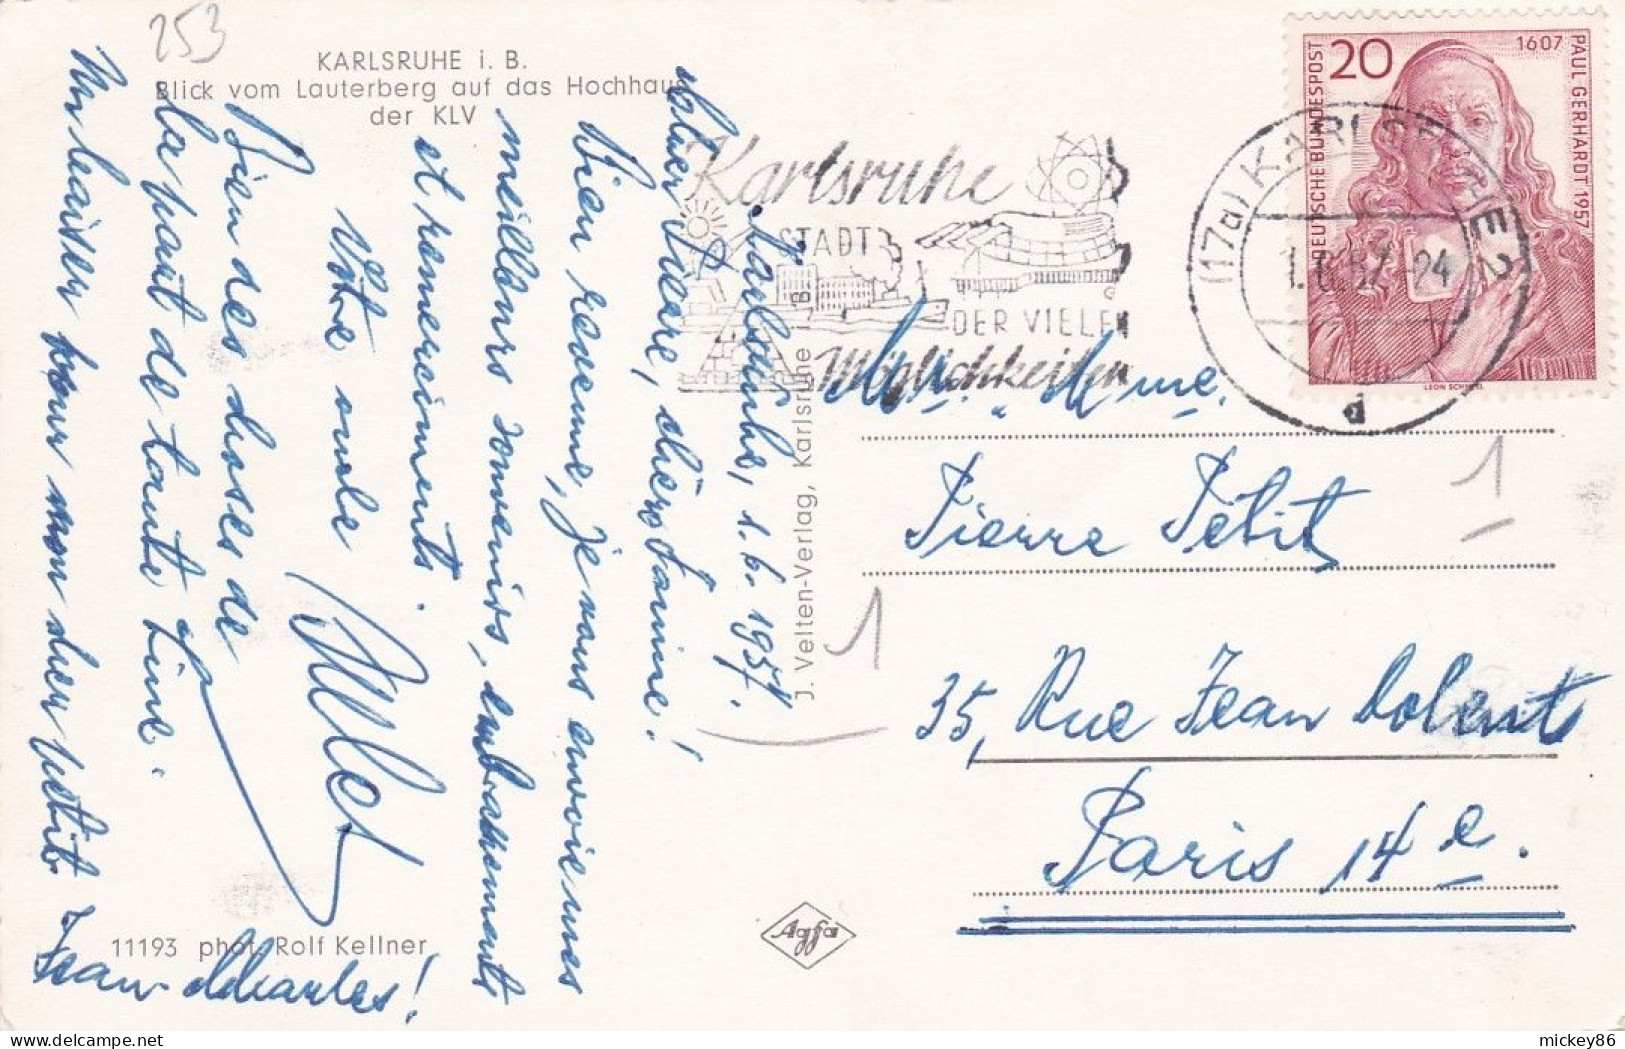 253
KARLSRUHE i. B.
Blick vom Lauterberg auf das Hochhaus
der KLV
Karlsruhe, 1. 6. 1957.
chère Janine!
Bien revenu, je vous envoie mes
meilleurs souvenirs, embrassements
et remerciments.
Votre oncle
Albert
Bien des choses de
la part de tante Line.
Un baiser pour mon cher petit
Jean-Charles!
11193 phot. Rolf Kellner
J. Velten-Verlag, Karlsruhe i. B.
Agfa
Karlsruhe
STADT
DER VIELEN
Möglichkeiten
(17a) KARLSRUHE 2
1.6.57.-24
d
20
1607
DEUTSCHE BUNDESPOST
PAUL GERHARDT 1957
LEON SCHNELL
Mr. Mme.
Pierre Petit
35, Rue Jean Dolent
Paris 14e.
1
1
mickey86